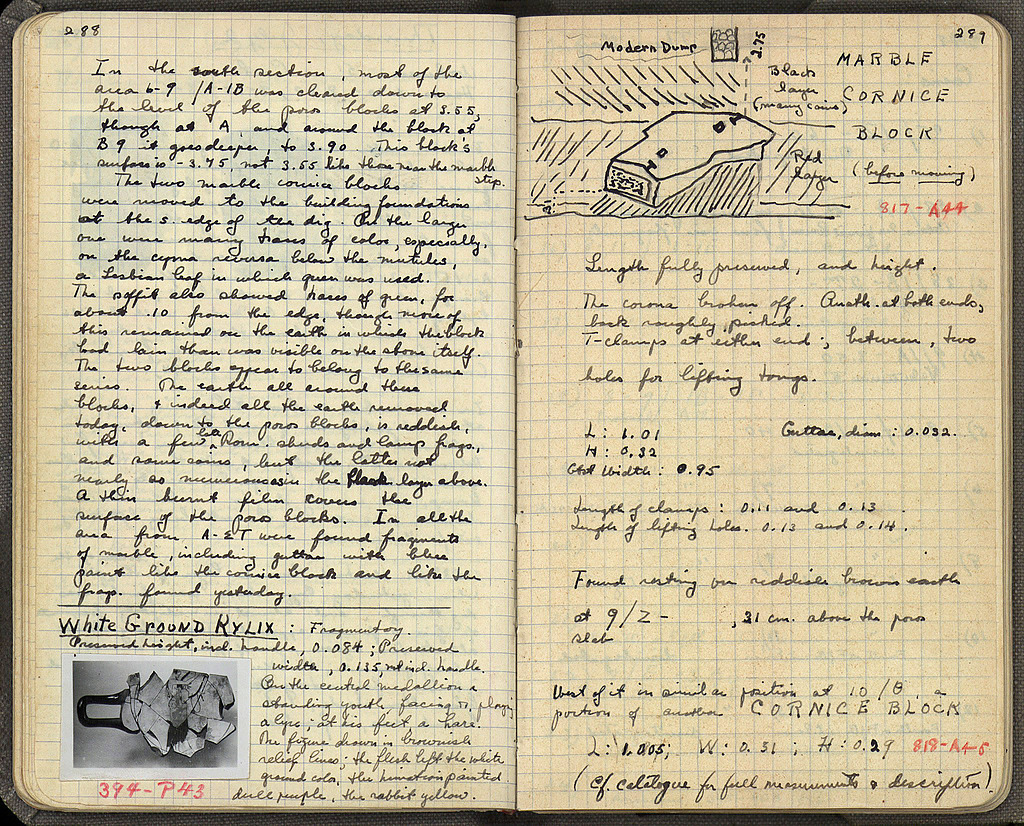 288
In the south section, most of the
area 6-9 /A-IB was cleared down to
the level of the poros blocks at 3.55,
though at A, and around the block at
B 9 it goes deeper, to 3.90. This block's
surface is -3.75, not 3.55 like those near the marble
step.
The two marble cornice blocks
were moved to the building foundations
at the S. edge of the dig. On the larger
one were many traces of color, especially,
on the cyma reversa below the mutules,
a Lesbian leaf in which green was used.
The soffit also showed traces of green, for
about .10 from the edge, though more of
this remained on the earth in which the block
had lain than was visible on the stone itself.
The two blocks appear to belong to the same
series. The earth all around these
blocks, & indeed all the earth removed
today, down to the poros blocks, is reddish,
with a few late Rom. sherds and lamp frags.,
and some coins, but the latter not
nearly so numerous as in the black layer above.
A thin burnt film covers the
surface of the poros blocks. In all the
area from A-ET were found fragments
of marble, including guttae with blue
paint like the cornice block and like the
frag. found yesterday.
White Ground Kylix : Fragmentary.
Preserved height, incl. handle, 0.084; Preserved
width, 0.135, not incl. handle.
On the central medallion a
standing youth, facing r., playing
a lyre; at his feet a hare.
The figure drawn in brownish
relief lines; the flesh left the white
ground color, the himation painted
dull purple, the rabbit yellow.
394-P43
289
Modern Dump
2.75
Black
layer
(many coins)
Red
layer
.31
MARBLE
CORNICE
BLOCK
(before moving)
817-A44
Length fully preserved, and height.
The corona broken off. Anath. at both ends,
back roughly picked.
T-clamps at either end; between, two
holes for lifting tongs.
L: 1.01 Guttae, diam: 0.032.
H: 0.32
Gtst Width: 0.95
Length of clamps: 0.11 and 0.13
Length of lifting holes. 0.13 and 0.14.
Found resting on reddish brown earth
at 9/Z- , 31 cm. above the poros
slab
West of it in similar position at 10/Θ, a
portion of another CORNICE BLOCK
L: 1.005; W: 0.31; H: 0.29 818-A45
(Cf. catalogue for full measurements & description)